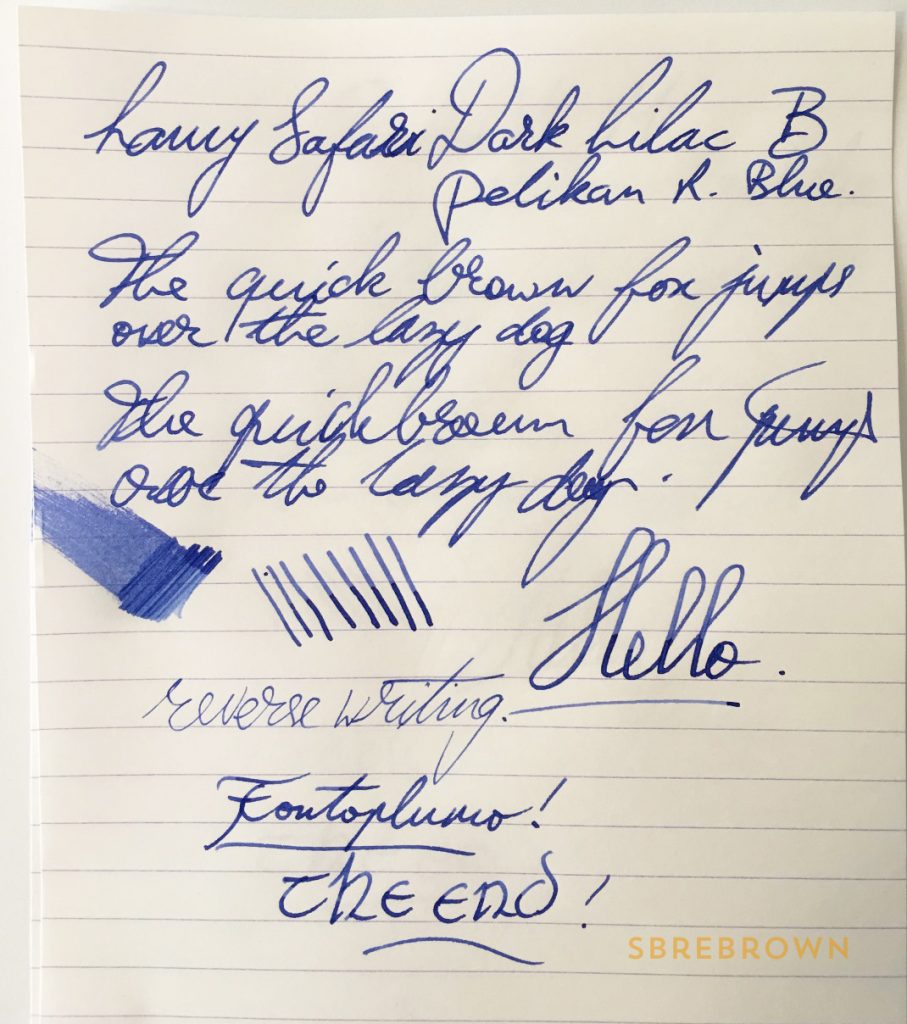 Lamy Safari Dark Lilac B
Pelikan R. Blue.
The quick brown fox jumps
over the lazy dog
The quick brown fox jumps
over the lazy dog.
Hello.
reverse writing.
Fontoplumo!
The End!
SBREBROWN